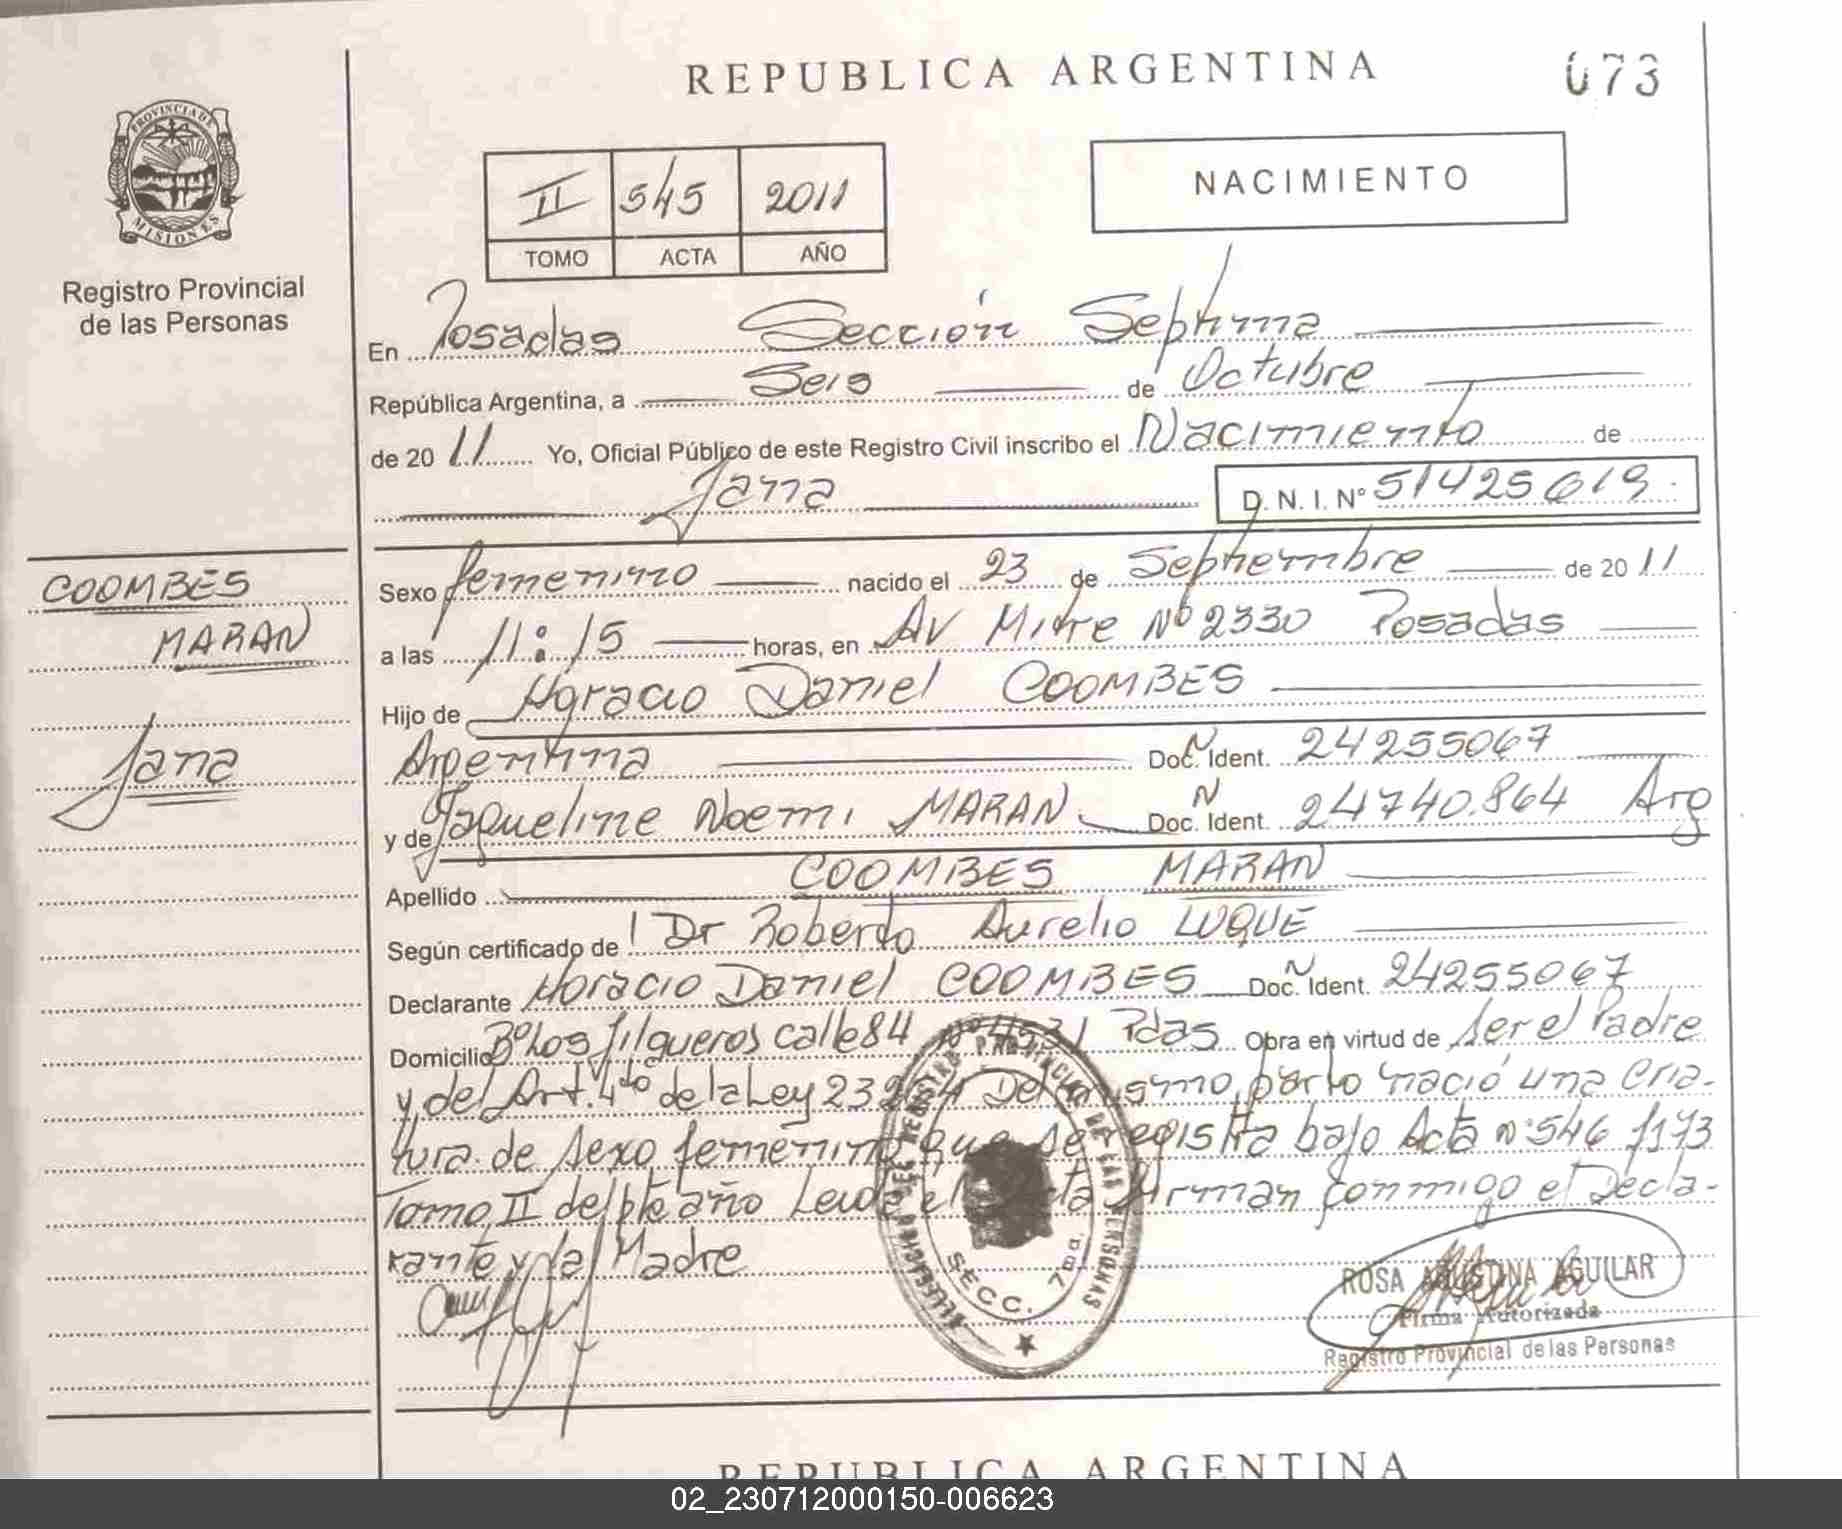 REPUBLICA ARGENTINA
073
PROVINCIA DE
MISIONES
Registro Provincial
de las Personas
II 545 2011
TOMO ACTA AÑO
NACIMIENTO
En Posadas Sección Septima
República Argentina, a Seis de Octubre
de 2011 Yo, Oficial Público de este Registro Civil inscribo el Nacimiento de
Jana D.N.I. Nº 51425619
COOMBES
MARAN
Jana
Sexo femenino nacido el 23 de Septiembre de 2011
a las 11:15 horas, en AV Mitre Nº 2330 Posadas
Hijo de Horacio Daniel COOMBES
Argentina Doc. N Ident. 24255067
y de Jaqueline Noemi MARAN Doc. N Ident. 24740.864 Arg
Apellido COOMBES MARAN
Según certificado de Dr Roberto Aurelio LUQUE
Declarante Horacio Daniel COOMBES Doc. N Ident. 24255067
Domicilio Bº Los Jilgueros calle 84 Nº 4531 Pdas Obra en virtud de ser el Padre
y del Art. 4to de la Ley 23264 Del mismo parto nació una cria-
tura de sexo femenino que se registra bajo Acta nº 546 f173
Tomo II del pte año Leida el Acta firman conmigo el Decla-
rante y la Madre
REGISTRO PROVINCIAL DE LAS PERSONAS
SECC. 7ma.
ROSA AGUSTINA AGUILAR
Firma Autorizada
Registro Provincial de las Personas
REPUBLICA ARGENTINA
02_230712000150-006623